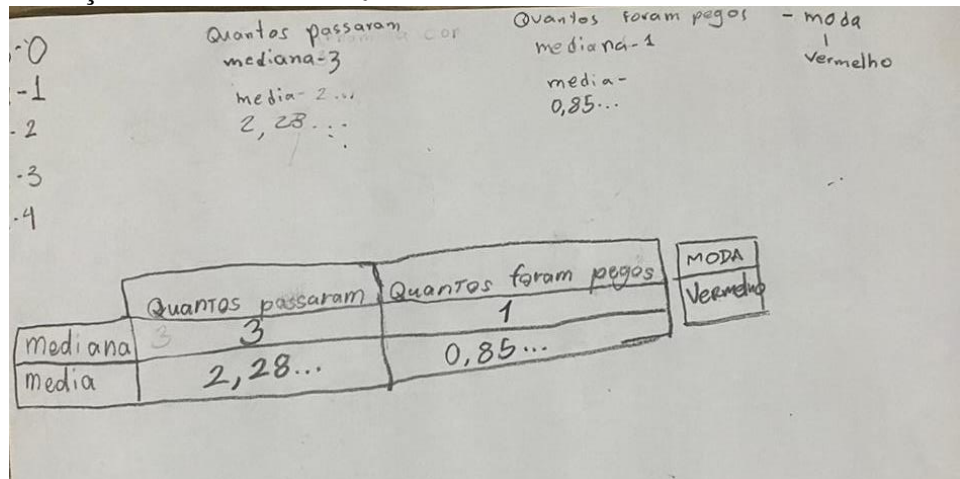 -0
-1
- 2
-3
-4
Quantos passaram
mediana-3
media- 2...
2, 28...
Quantos foram pegos
mediana-1
media-
0,85...
- moda
vermelho
Quantos passaram Quantos foram pegos
mediana 3 3 1
media 2,28... 0,85...
MODA
Vermelho